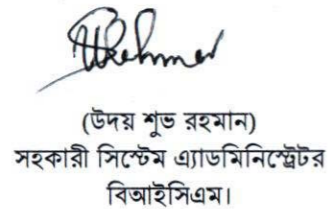 (উদয় শুভ রহমান)
সহকারী সিস্টেম এ্যাডমিনিস্ট্রেটর
বিআইসিএম।